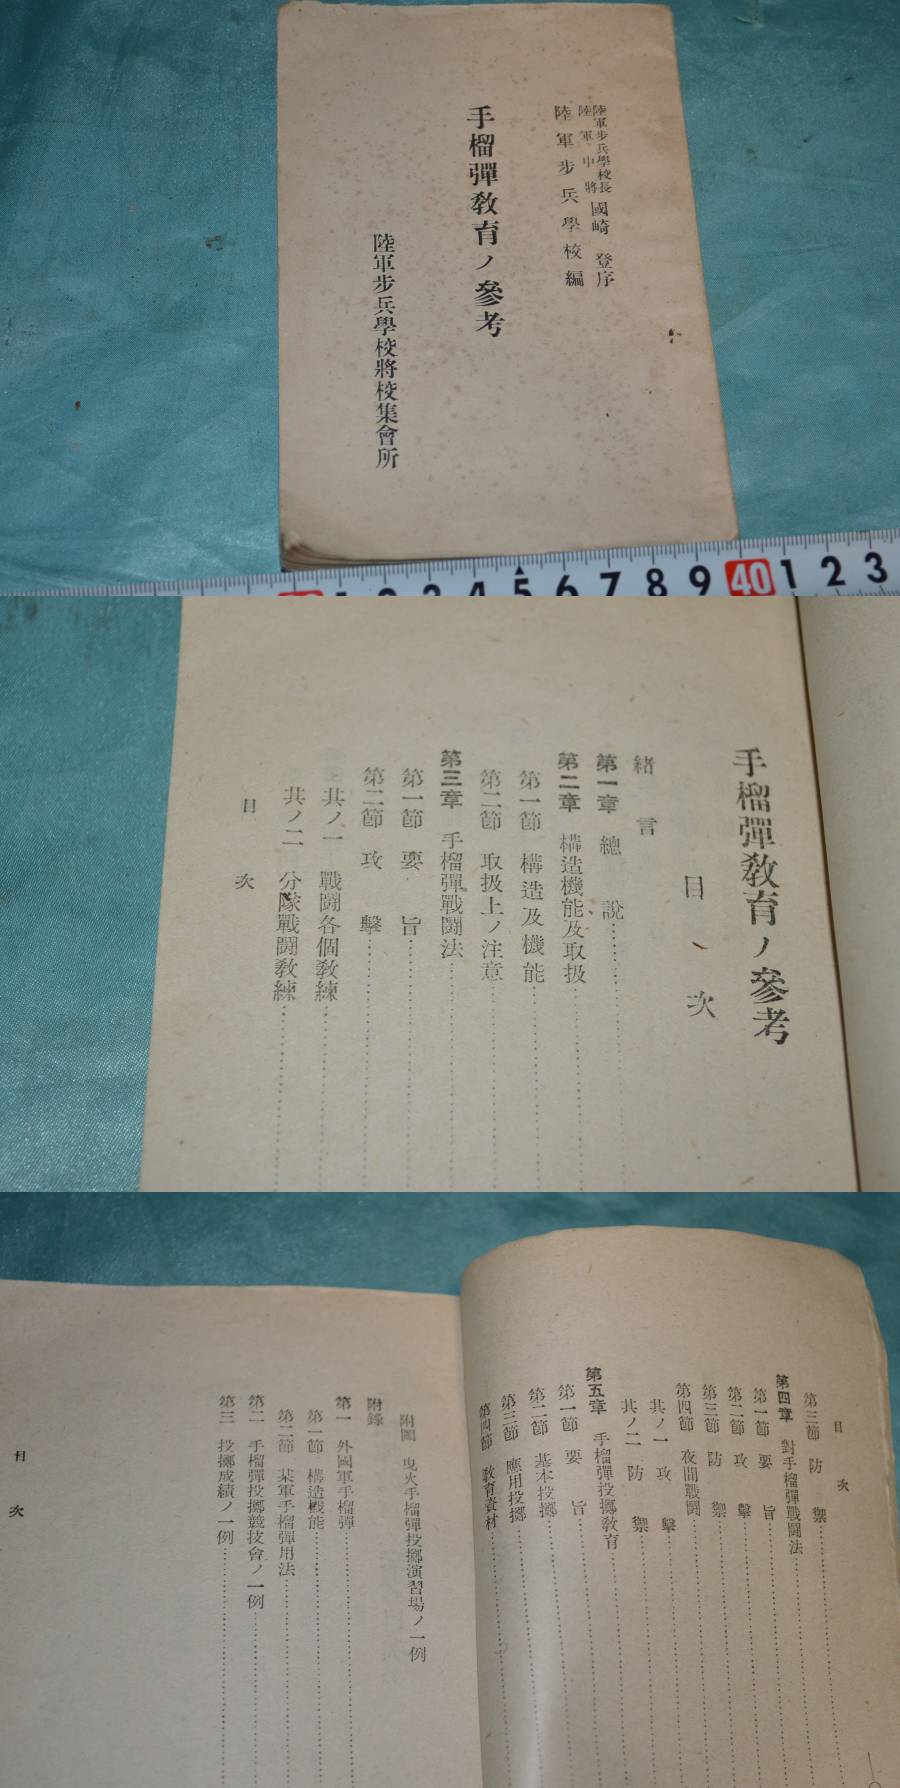 陸軍步兵學校長
陸軍中將
國崎 登序
陸軍步兵學校編
手榴彈敎育ノ參考
陸軍步兵學校將校集會所
1 2 3 4 5 6 7 8 9 40 1 2 3
手榴彈敎育ノ參考
目次
緒言
第一章 總說
第二章 構造機能及取扱
第一節 構造及機能
第二節 取扱上ノ注意
第三章 手榴彈戰鬪法
第一節 要旨
第二節 攻擊
其ノ一 戰鬪各個敎練
其ノ二 分隊戰鬪敎練
目次
目次
第三節 防禦
第四章 對手榴彈戰鬪法
第一節 要旨
第二節 攻擊
第三節 防禦
第四節 夜間戰鬪
其ノ一 攻擊
其ノ二 防禦
第五章 手榴彈投擲敎育
第一節 要旨
第二節 基本投擲
第三節 應用投擲
第四節 敎育資材
附圖 曳火手榴彈投擲演習場ノ一例
附錄
第一 外國軍手榴彈
第一節 構造機能
第二節 某軍手榴彈用法
第二 手榴彈投擲競技會ノ一例
第三 投擲成績ノ一例
目次